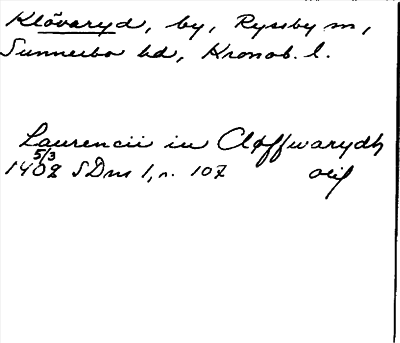 Klövaryd, by, Ryssby sn,
Sunnerbo hd, Kronob. l.
Laurencii in Cløffwarydh
5/3
1402 SDns 1, s. 107 orig